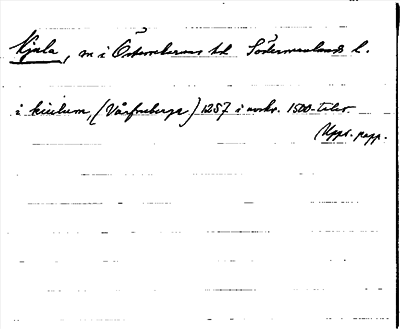 Kjula, m i Österrekarne hd Södermanlands l.
i kiulum, (Vårfruberga) 1257 i avskr. 1500-talet
Upps. papp.